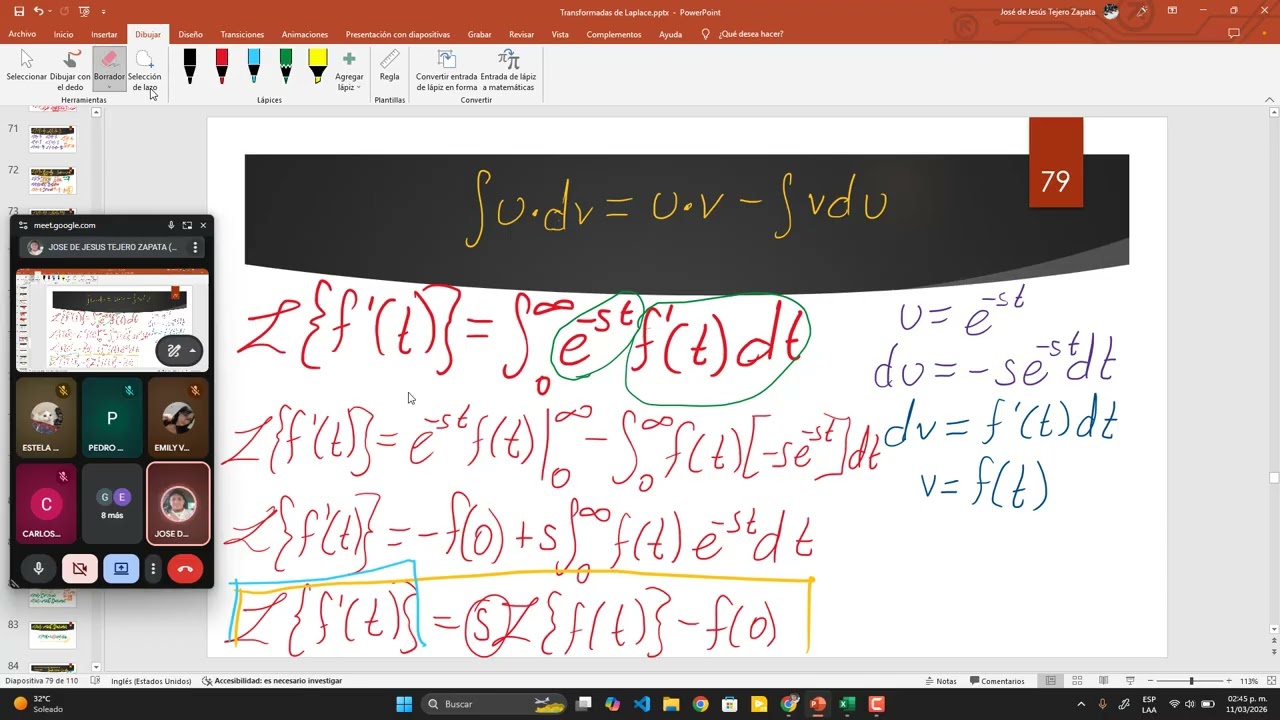 Transformadas de Laplace.pptx - PowerPoint
José de Jesús Tejero Zapata
Archivo Inicio Insertar Dibujar Diseño Transiciones Animaciones Presentación con diapositivas Grabar Revisar Vista Complementos Ayuda ¿Qué desea hacer?
Seleccionar
Dibujar con el dedo
Borrador
Selección de lazo
Agregar lápiz
Regla
Convertir entrada de lápiz en forma
Entrada de lápiz a matemáticas
Herramientas Lápices Plantillas Convertir
71
72
73
83
84
meet.google.com
JOSE DE JESUS TEJERO ZAPATA (...
ESTELA ...
PEDRO ...
EMILY V...
C
P
G E
CARLOS...
8 más
JOSE D...
79
∫u·dv = u·v - ∫vdu
ℒ{f'(t)} = ∫₀^∞ e^{-st} f'(t) dt
ℒ{f'(t)} = e^{-st} f(t)|₀^∞ - ∫₀^∞ f(t)[-se^{-st}]dt
ℒ{f'(t)} = -f(0) + s∫₀^∞ f(t) e^{-st} dt
ℒ{f'(t)} = sℒ{f(t)} - f(0)
u = e^{-st}
du = -se^{-st}dt
dv = f'(t)dt
v = f(t)
Diapositiva 79 de 110 Inglés (Estados Unidos) Accesibilidad: es necesario investigar
Notas Comentarios 113%
32°C
Soleado
Buscar
ESP
LAA
02:45 p. m.
11/03/2026